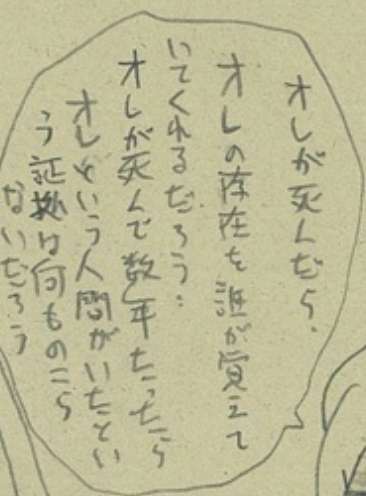 オレが死んだら、
オレの存在を誰が覚えて
いてくれるだろう…
オレが死んで数年たったら
オレという人間がいたとい
う証拠は何ものこら
ないだろう